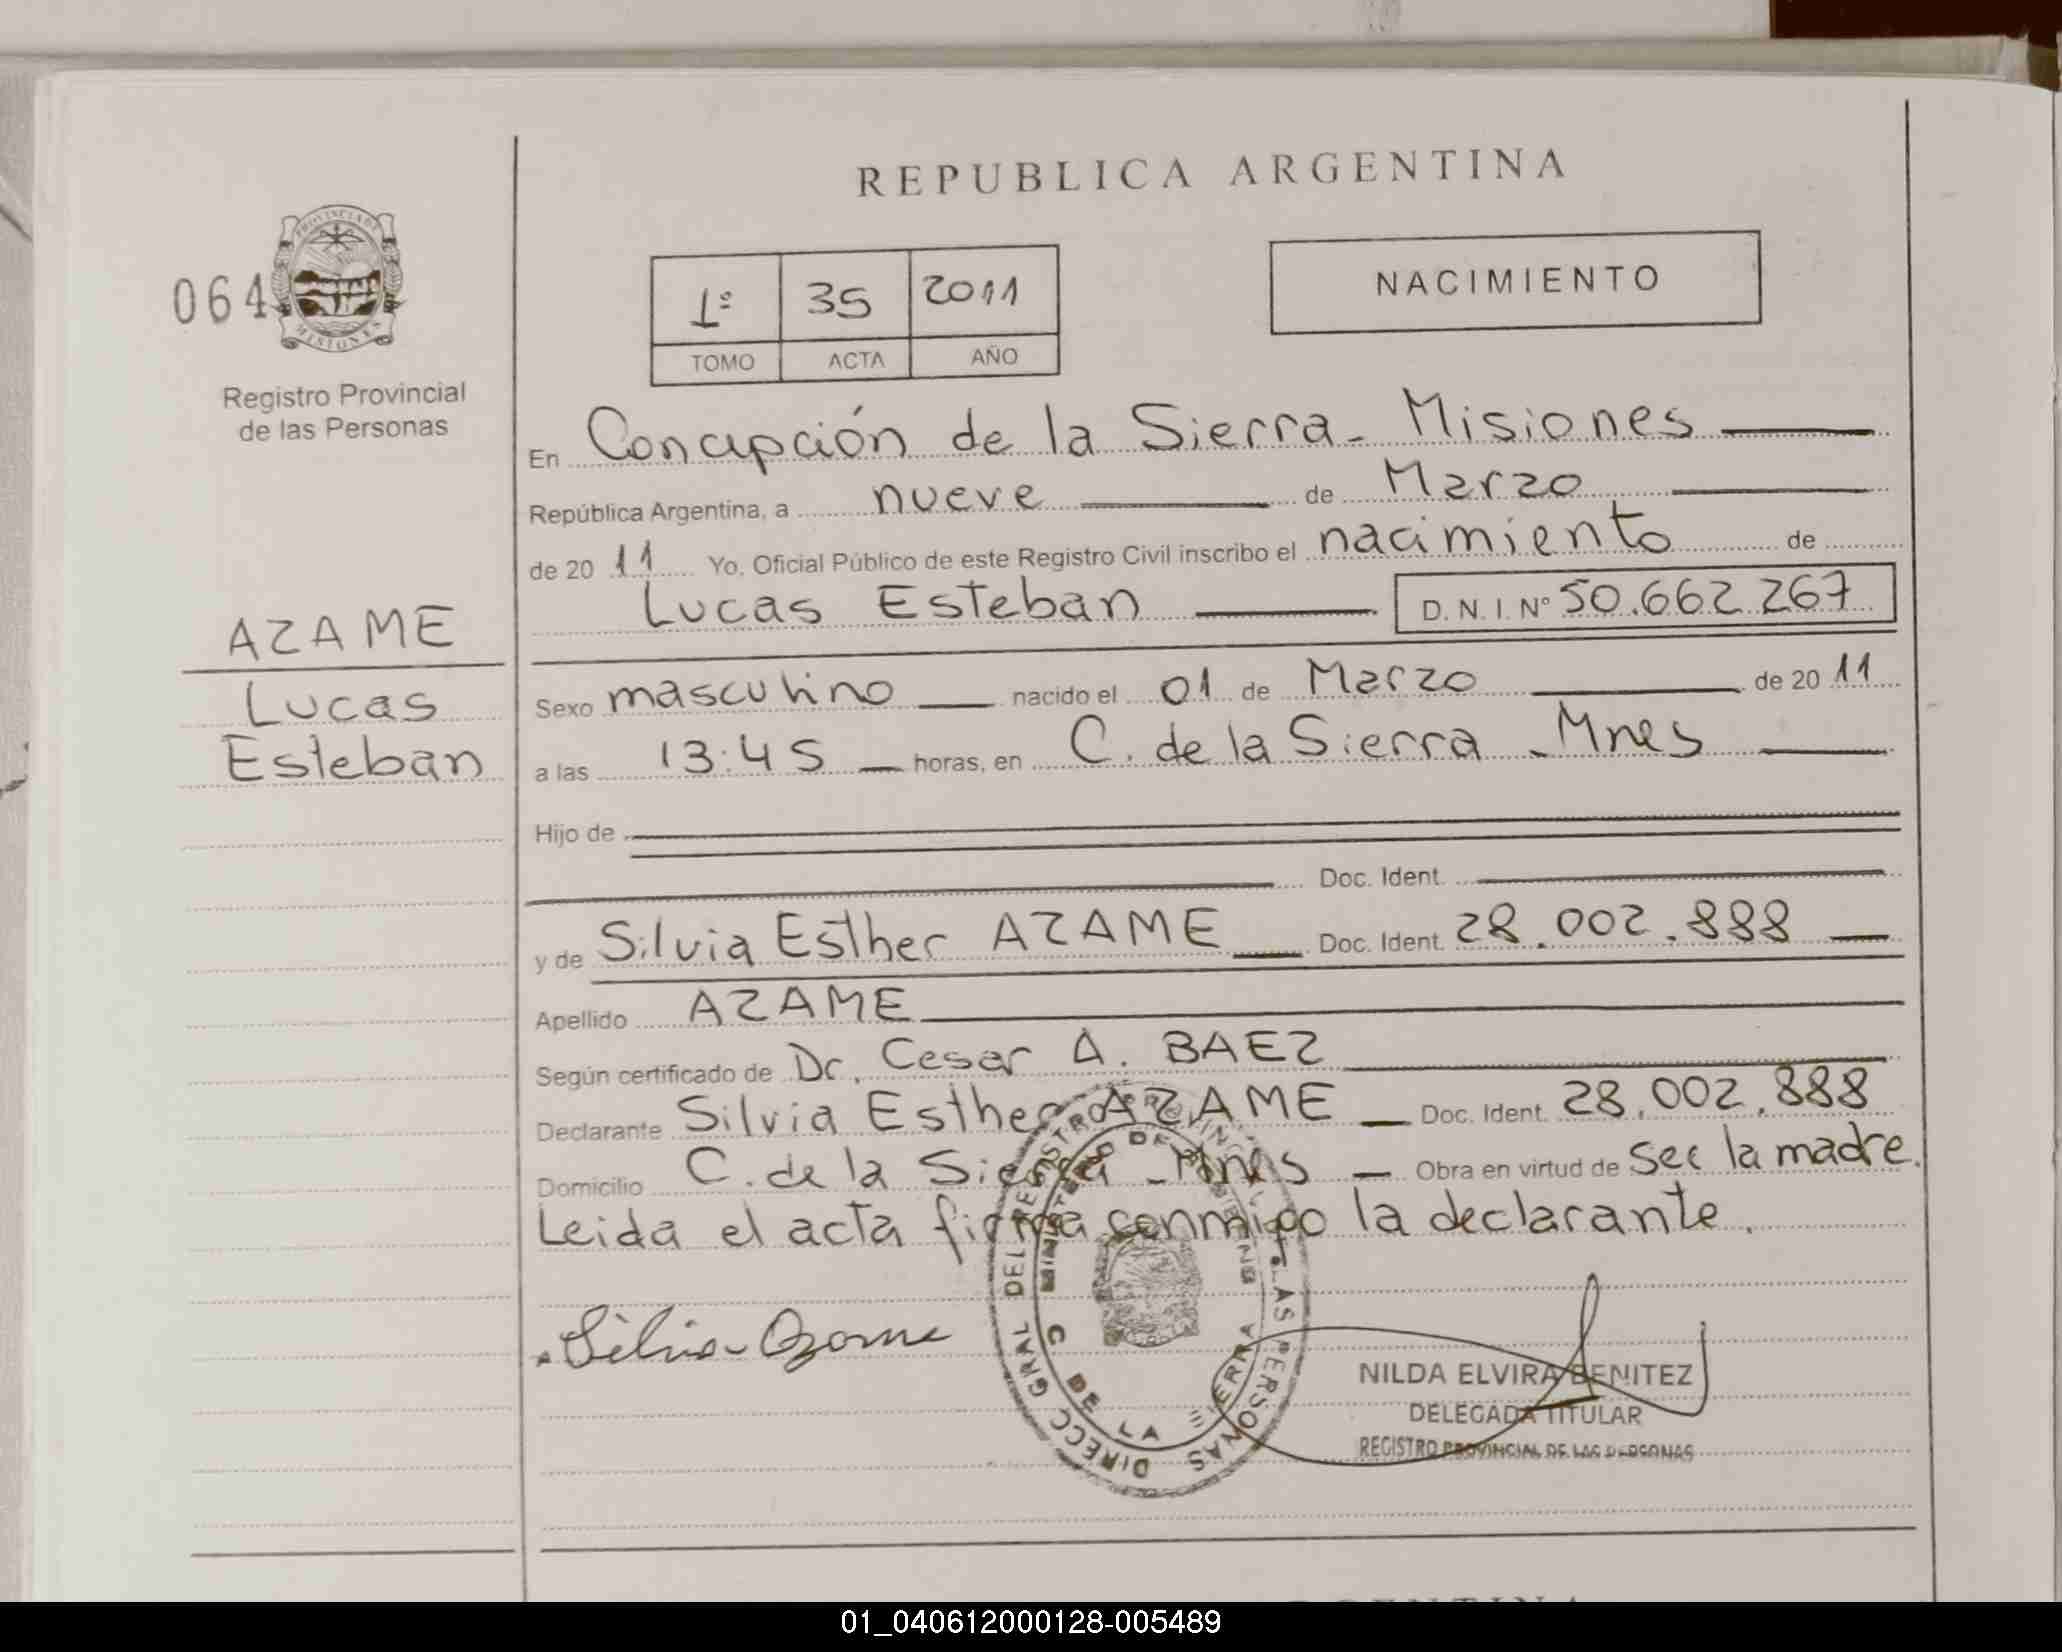 REPUBLICA ARGENTINA
064
PROVINCIA DE
MISIONES
Registro Provincial
de las Personas
1º 35 2011
TOMO ACTA AÑO
NACIMIENTO
AZAME
Lucas
Esteban
En Concepción de la Sierra - Misiones
República Argentina, a nueve de Marzo
de 20 11 Yo, Oficial Público de este Registro Civil inscribo el nacimiento de
Lucas Esteban D. N. I. Nº 50.662.267
Sexo masculino nacido el 01 de Marzo de 20 11
a las 13:45 horas, en C. de la Sierra - Mnes
Hijo de
Doc. Ident.
y de Silvia Esther AZAME Doc. Ident. 28.002.888
Apellido AZAME
Según certificado de Dr. Cesar A. BAEZ
Declarante Silvia Esther AZAME Doc. Ident. 28.002.888
Domicilio C. de la Sierra - Mnes Obra en virtud de ser la madre.
Leida el acta firma conmigo la declarante.
Silvia Azame
DIRECC GRAL DEL REGISTRO PROVINCIAL DE LAS PERSONAS
MINISTERIO DE GOBIERNO
C DE LA SIERRA
NILDA ELVIRA BENITEZ
DELEGADA TITULAR
REGISTRO PROVINCIAL DE LAS PERSONAS
01_040612000128-005489